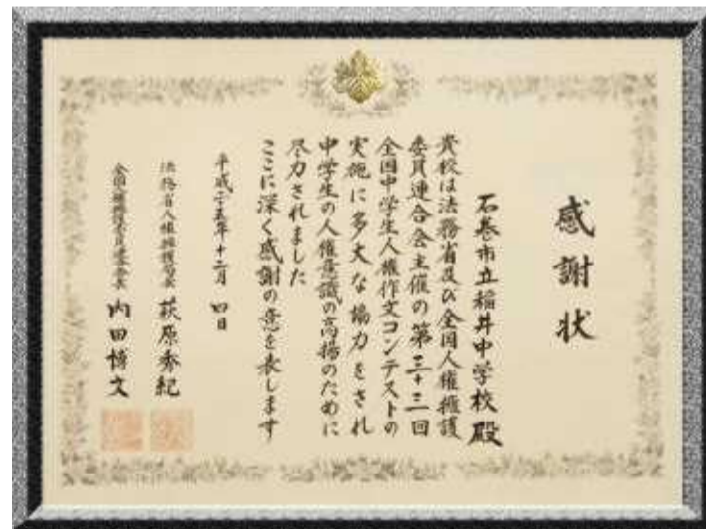 感謝状
石巻市立稲井中学校殿
貴校は法務省及び全国人権擁護
委員連合会主催の第三十三回
全国中学生人権作文コンテストの
実施に多大な協力をされ
中学生の人権意識の高揚のために
尽力されました
ここに深く感謝の意を表します
平成二十五年十二月四日
法務省人権擁護局長 萩原秀紀
全国人権擁護委員連合会長 内田博文